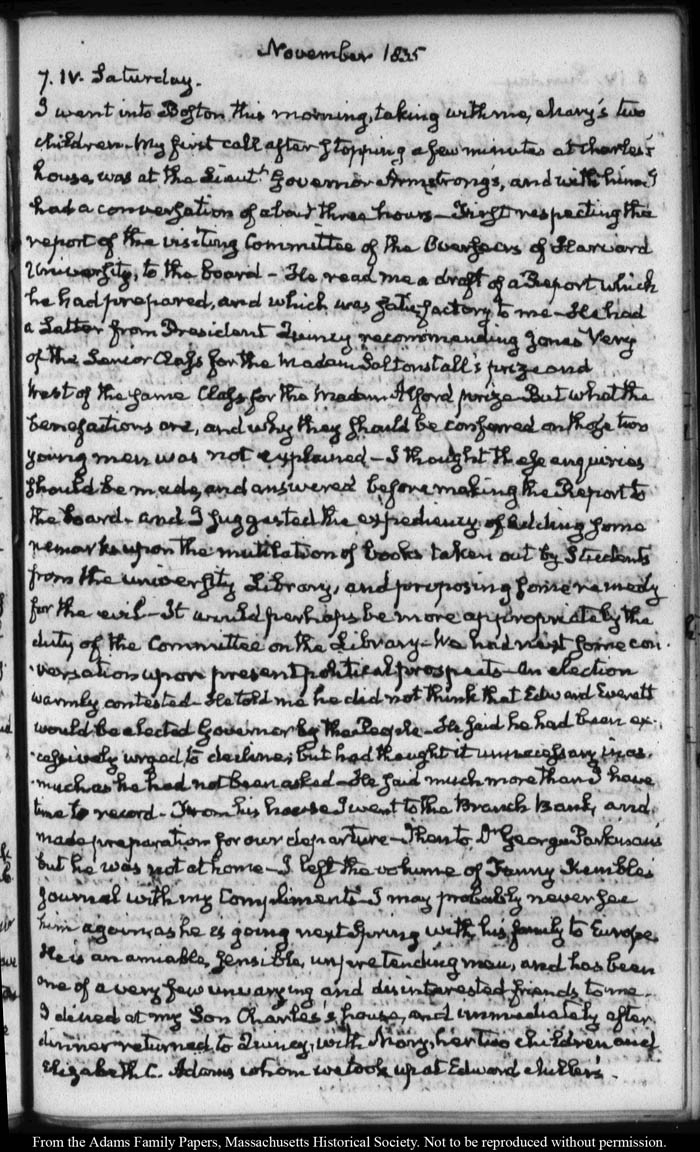 November 1835
7. IV. Saturday.
I went into Boston this morning, taking with me, Mary's two
children. My first call after stopping a few minutes at Charles's
house, was at the Lieutt. Governor Armstrong's, and with him I
had a conversation of about three hours — First respecting the
report of the visiting Committee of the Overseers of Harvard
University, to the board — He read me a draft of a Report which
he had prepared, and which was satisfactory to me — He had
a Letter from President Quincy recommending Jones Very
of the Senior Class for the Madam Saltonstall's prize and
West of the same Class, for the Madam Alford prize. But what the
benefactions are, and why they should be conferred on those two
young men was not explained — I thought these enquiries
should be made, and answered before making the Report to
the board. and I suggested the expediency of adding some
remarks upon the mutilation of books taken out by Students
from the University Library, and proposing some remedy
for the evil — It would perhaps be more appropriately the
duty of the Committee on the Library — We had next some con-
-versation upon present political prospects — An election
warmly contested — He told me he did not think that Edward Everett
would be elected Governor by the People — He said he had been ex-
-cessively urged to decline; but had thought it unnecessary, inas-
-much as he had not been asked — He said much more than I have
time to record — From his house I went to the Branch Bank, and
made preparation for our departure — Then to Dr George Parkman's
but he was not at home — I left the volume of Fanny Kemble's
Journal with my Compliments — I may probably never see
him again, as he is going next Spring with his family to Europe.
He is an amiable, sensible, unpretending man, and has been
one of a very few unvarying and disinterested friends to me.
I dined at my Son Charles's house, and immediately after
dinner returned to Quincy, with Mary, her two children and
Elizabeth C. Adams whom we took up at Edward Miller's.
From the Adams Family Papers, Massachusetts Historical Society. Not to be reproduced without permission.